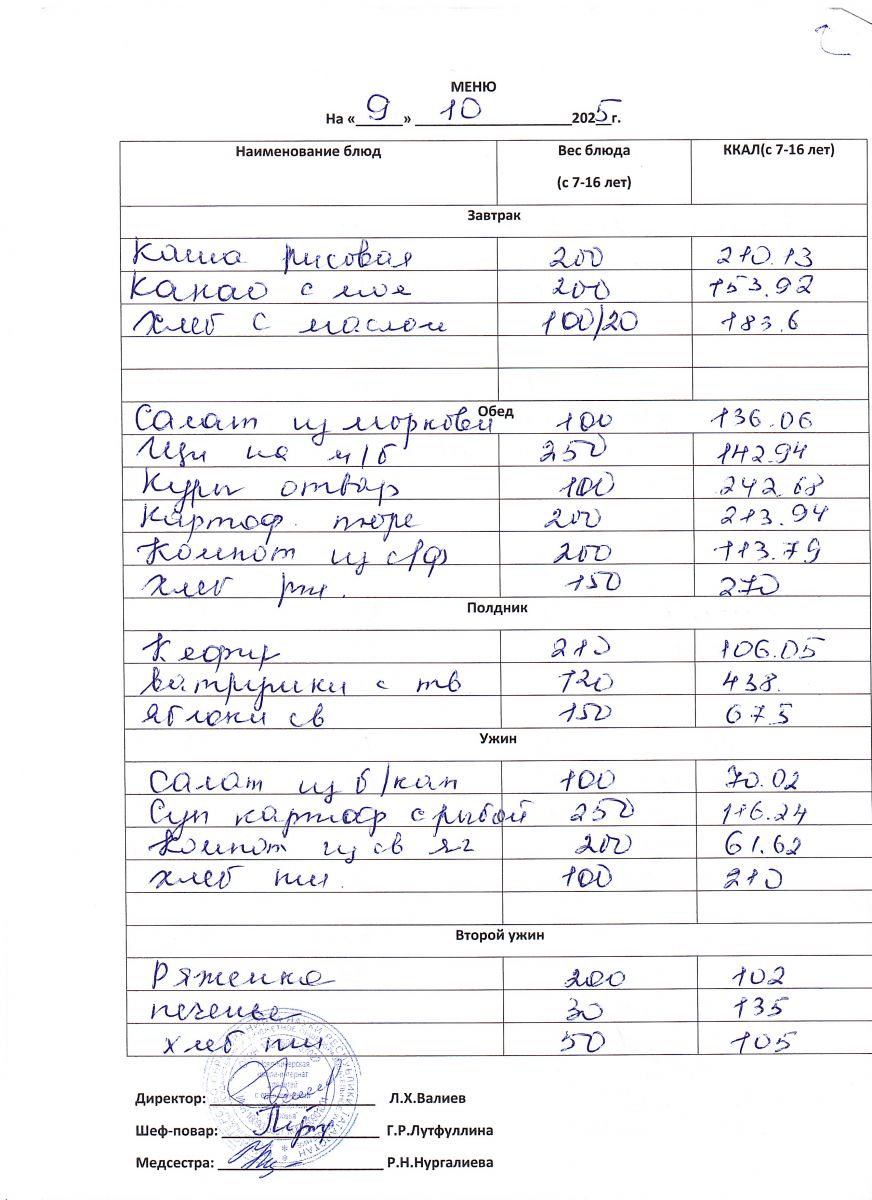 МЕНЮ
На «9» 10 2025г.
Наименование блюд Вес блюда (с 7-16 лет) ККАЛ(с 7-16 лет)
Завтрак
Каша рисовая 200 210.13
Какао с мол 200 153.92
Хлеб с маслом 100/20 183.6
Обед
Салат из моркови 100 136.06
Щи на м/б 250 142.94
Куры отвар 100 242.68
Картоф. пюре 200 213.94
Компот из с/ф 200 113.79
Хлеб рж. 150 270
Полдник
Кефир 210 106.05
Ватрушки с тв 120 438.
Яблоки св 150 67.5
Ужин
Салат из б/кап 100 70.02
Суп картоф с рыбой 250 116.24
Компот из св яг 200 61.62
Хлеб пш. 100 210
Второй ужин
Ряженка 200 102
печенье 30 135
хлеб пш 50 105
Директор: Л.Х.Валиев
Шеф-повар: Г.Р.Лутфуллина
Медсестра: Р.Н.Нургалиева